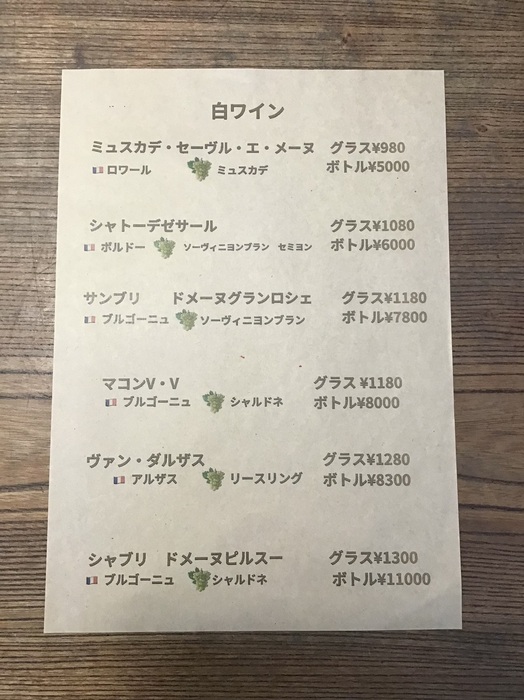 白ワイン
ミュスカデ・セーヴル・エ・メーヌ グラス¥980
ロワール ミュスカデ ボトル¥5000
シャトーデゼサール グラス¥1080
ボルドー ソーヴィニヨンブラン セミヨン ボトル¥6000
サンブリ ドメーヌグランロシェ グラス¥1180
ブルゴーニュ ソーヴィニヨンブラン ボトル¥7800
マコンV・V グラス¥1180
ブルゴーニュ シャルドネ ボトル¥8000
ヴァン・ダルザス グラス¥1280
アルザス リースリング ボトル¥8300
シャブリ ドメーヌピルスー グラス¥1300
ブルゴーニュ シャルドネ ボトル¥11000